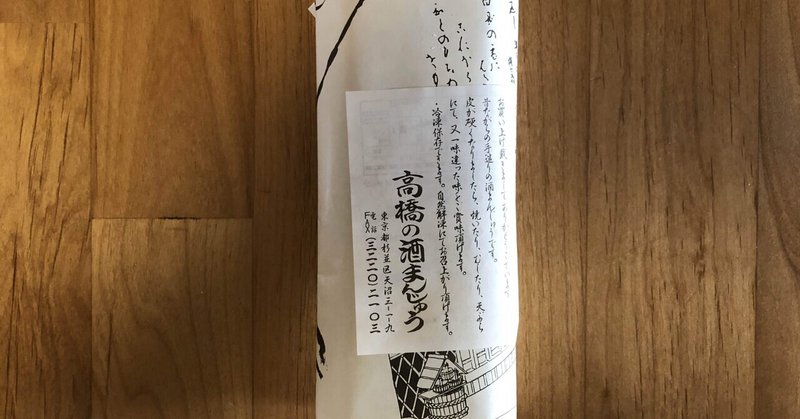 お買い上げ戴きましてありがとうございます
昔ながらの手造りの酒まんじゅうです。
皮が硬くなりましたら、焼いたり、むしたり、天ぷら
にて、又一味違った味をご賞味頂けます。
・冷凍保存できます。自然解凍にてお召上がり頂けます。
高橋の酒まんじゅう
東京都杉並区天沼三－一－九
電話
FAX(三二二〇)二一〇三